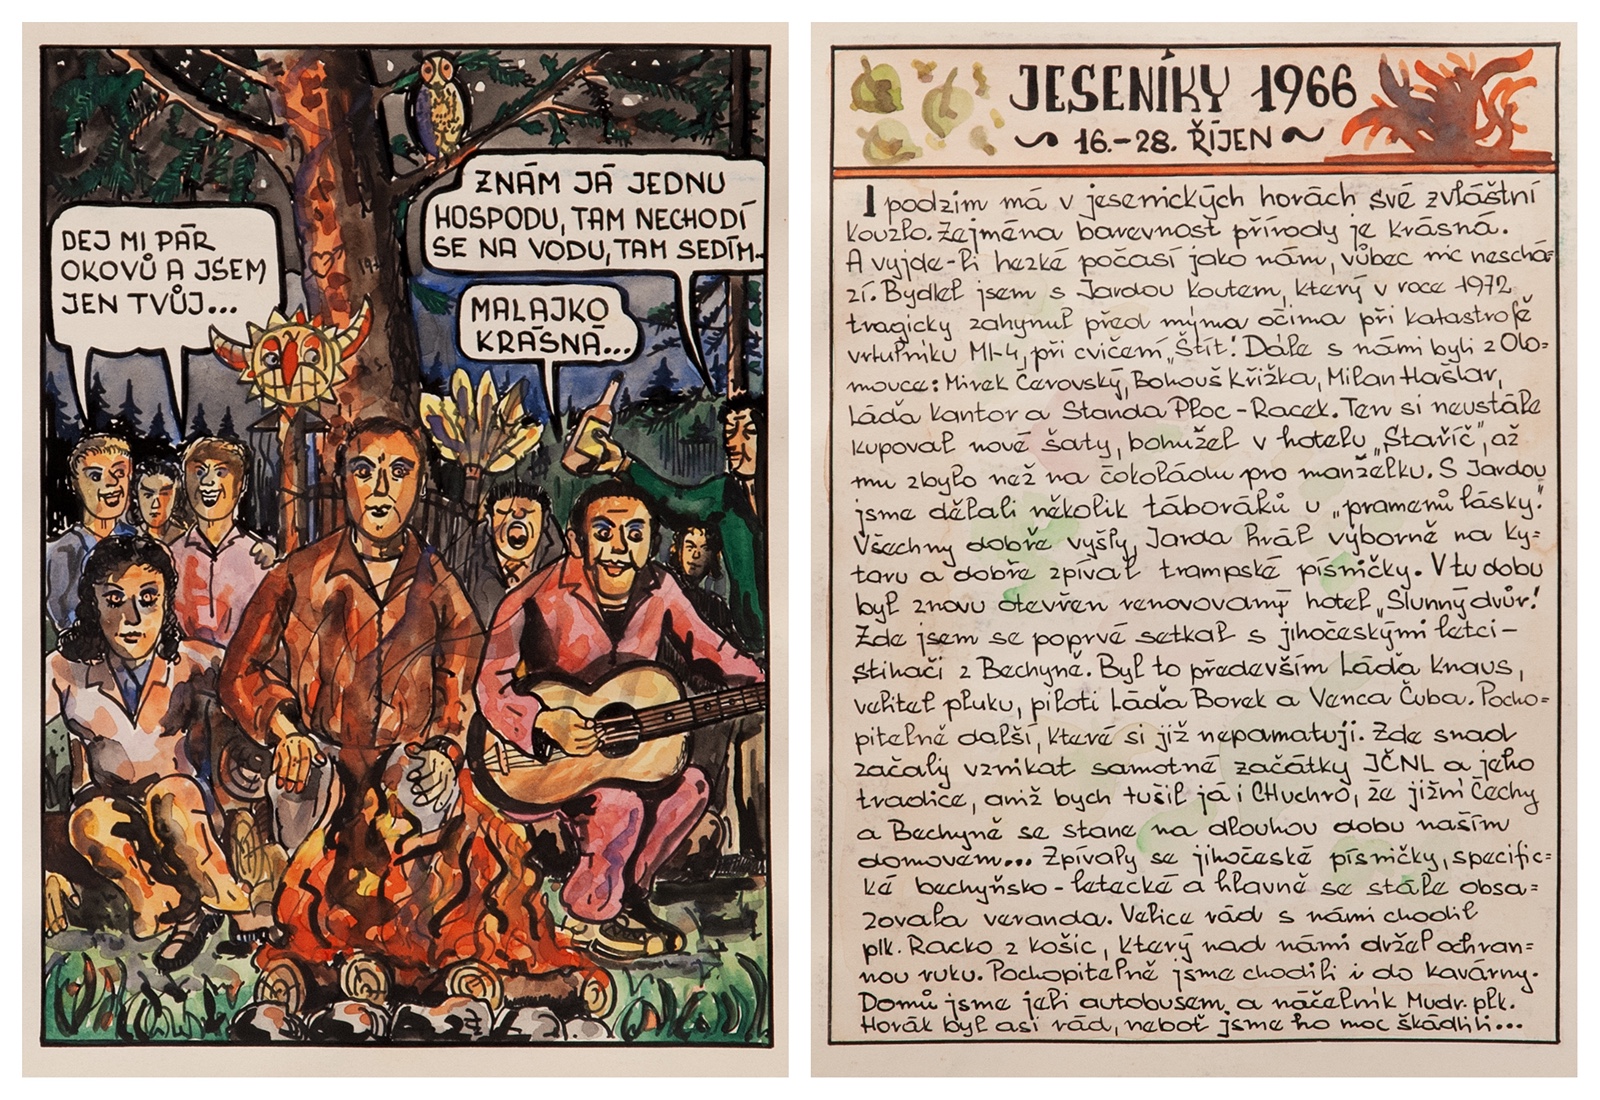 DEJ MI PÁR
OKOVŮ A JSEM
JEN TVŮJ...
ZNÁM JÁ JEDNU
HOSPODU, TAM NECHODÍ
SE NA VODU, TAM SEDÍM..
MALAJKO
KRÁSNÁ...
JESENÍKY 1966
~ 16.-28. ŘÍJEN ~
I podzim má v jesenických horách své zvláštní
kouzlo. Zejména barevnost přírody je krásná.
A vyjde-li hezké počasí jako nám, vůbec nic neschá=
zí. Bydlel jsem s Jardou Koutem, který v roce 1972
tragicky zahynul před mýma očima při katastrofě
vrtulníku MI-4, při cvičení „Štít". Dále s námi byli z Olo=
mouce: Mirek Čerovský, Bohouš Křižka, Milan Hašlar,
Láďa Kantor a Standa Ploc - Racek. Ten si neustále
kupoval nové šaty, bohužel v hotelu „Stařič", až
mu zbylo než na čokoládu pro manželku. S Jardou
jsme dělali několik táboráků u „pramenů lásky".
Všechny dobře vyšly, Jarda hrál výborně na ky=
taru a dobře zpíval trampské písničky. V tu dobu
byl znovu otevřen renovovaný hotel „Slunný dvůr".
Zde jsem se poprvé setkal s jihočeskými letci -
stihači z Bechyně. Byl to především Láďa Knaus,
velitel pluku, piloti Láďa Borek a Venca Čuba. Pocho=
pitelně další, které si již nepamatuji. Zde snad
začaly vznikat samotné začátky JČNL a jeho
tradice, aniž bych tušil já i CHuchro, že jižní Čechy
a Bechyně se stane na dlouhou dobu naším
domovem... Zpívaly se jihočeské písničky, specific=
ké bechyňsko - letecké a hlavně se stále obsa=
zovala veranda. Velice rád s námi chodil
plk. Racko z Košic, který nad námi držel ochran=
nou ruku. Pochopitelně jsme chodili i do kavárny.
Domů jsme jeli autobusem a náčelník Mudr. plk.
Horák byl asi rád, neboť jsme ho moc škádlili...